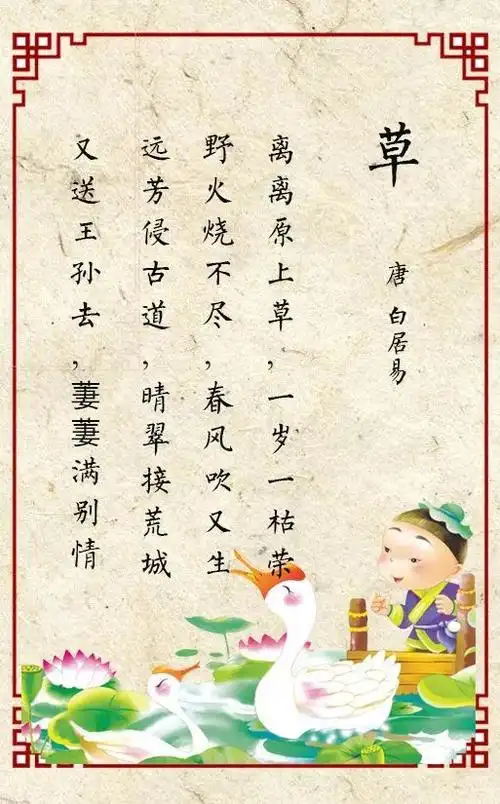 草
唐 白居易
离离原上草,一岁一枯荣
野火烧不尽,春风吹又生
远芳侵古道,晴翠接荒城
又送王孙去,萋萋满别情